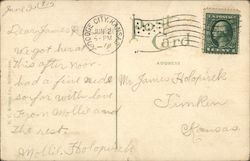 June 20 1913
Dear James
We got here
this after noon.
had a fine ride
so far with love
From Mollie and
The rest.
Mollie Holopirek
DODGE CITY, KANSAS
JUN 2
-PM
Post
Card
ADDRESS
Mr James Holopirek
Timken
Kansas